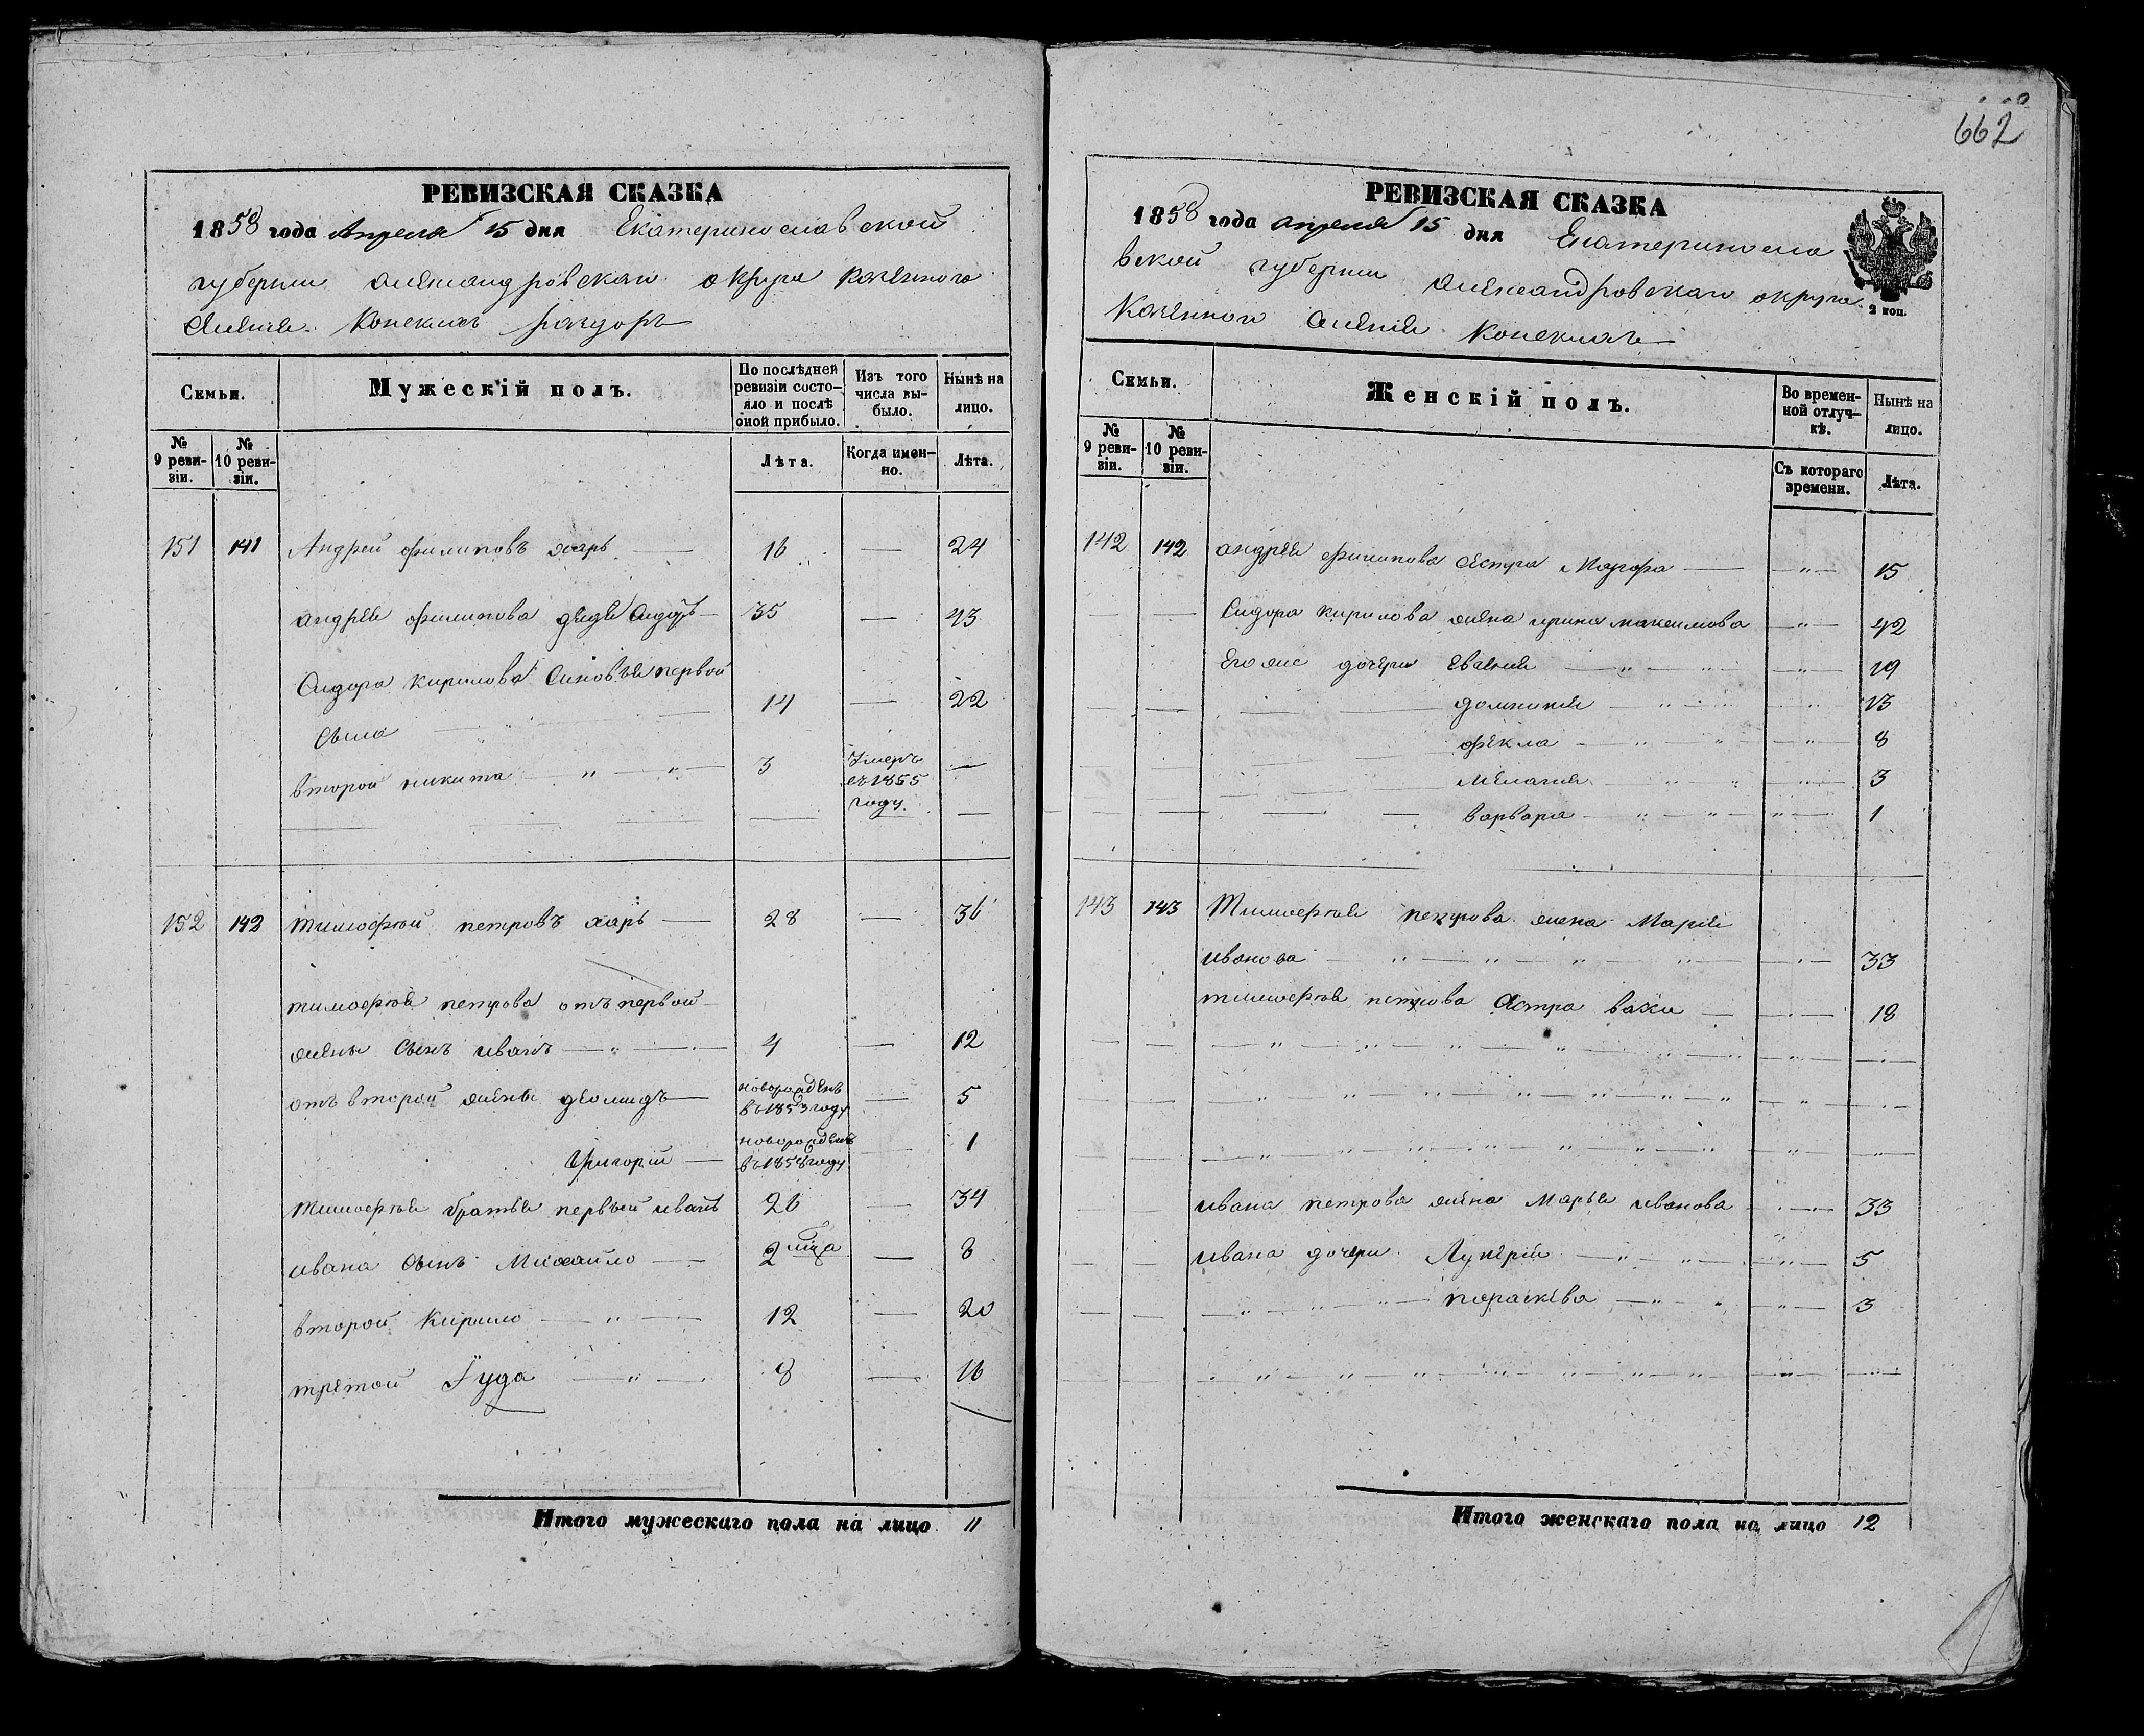 662
РЕВИЗСКАЯ СКАЗКА
1858 года Апреля 15 дня Екатеринославской
губернии Александровскаго округа казеннаго
Конскихъ раздоръ
Семьи.
Мужескій полъ.
По послѣдней ревизіи состо-яло и послѣ оной прибыло.
Изъ того числа вы-было.
Нынѣ на лицо.
№ 9 реви-зіи.
№ 10 реви-зіи.
Лѣта.
Когда имен-но.
Лѣта.
151 141 Андрей филиповъ харь — 16 — 24
андрея филипова дядя Сидоръ — 35 — 43
Сидора кирилова Синовья первой
14 — 22
второй никита — " — " — 3 Умеръ въ 1855 году. —
152 142 тимофѣй петровъ харь — 28 — 36
тимофѣя петрова отъ первой
жены сынъ иванъ — " — 4 — 12
отъ второй жены диомидъ — новорожденъ въ 1853 году — 5
Григорій — новорожденъ въ 1858 году — 1
тимофѣя братья первый иванъ 26 — 34
ивана сынъ Михайло — 2 мѣца — 8
второй Кирило — " — 12 — 20
третой Іуда — " — 8 — 16
Итого мужескаго пола на лицо 11
РЕВИЗСКАЯ СКАЗКА
1858 года апреля 15 дня Екатериносла
вской губернии Александровскаго округа
казеннаго Конскихъ
2 коп.
Семьи.
Женскій полъ.
Во времен-ной отлуч-кѣ.
Нынѣ на лицо.
№ 9 реви-зіи.
№ 10 реви-зіи.
Съ котораго времени.
Лѣта.
142 142 андрея филипова сестра — " — 15
Сидора кирилова жена ирина максимова — " — 42
Его же дочери Евгения — " — " — 19
домникия — " — 13
фекла — " — " — " — 8
Мелания " " — " — 3
варвара — " — " — " — 1
143 143 Тимофѣя петрова жена Мария
иванова — " — " — " — " — 33
тимофѣя петрова сестра — 18
ивана петрова жена Марья иванова — " — 33
ивана дочери Лукерія — " — " — " — 5
параскева — " — " — " — 3
Итого женскаго пола на лицо 12